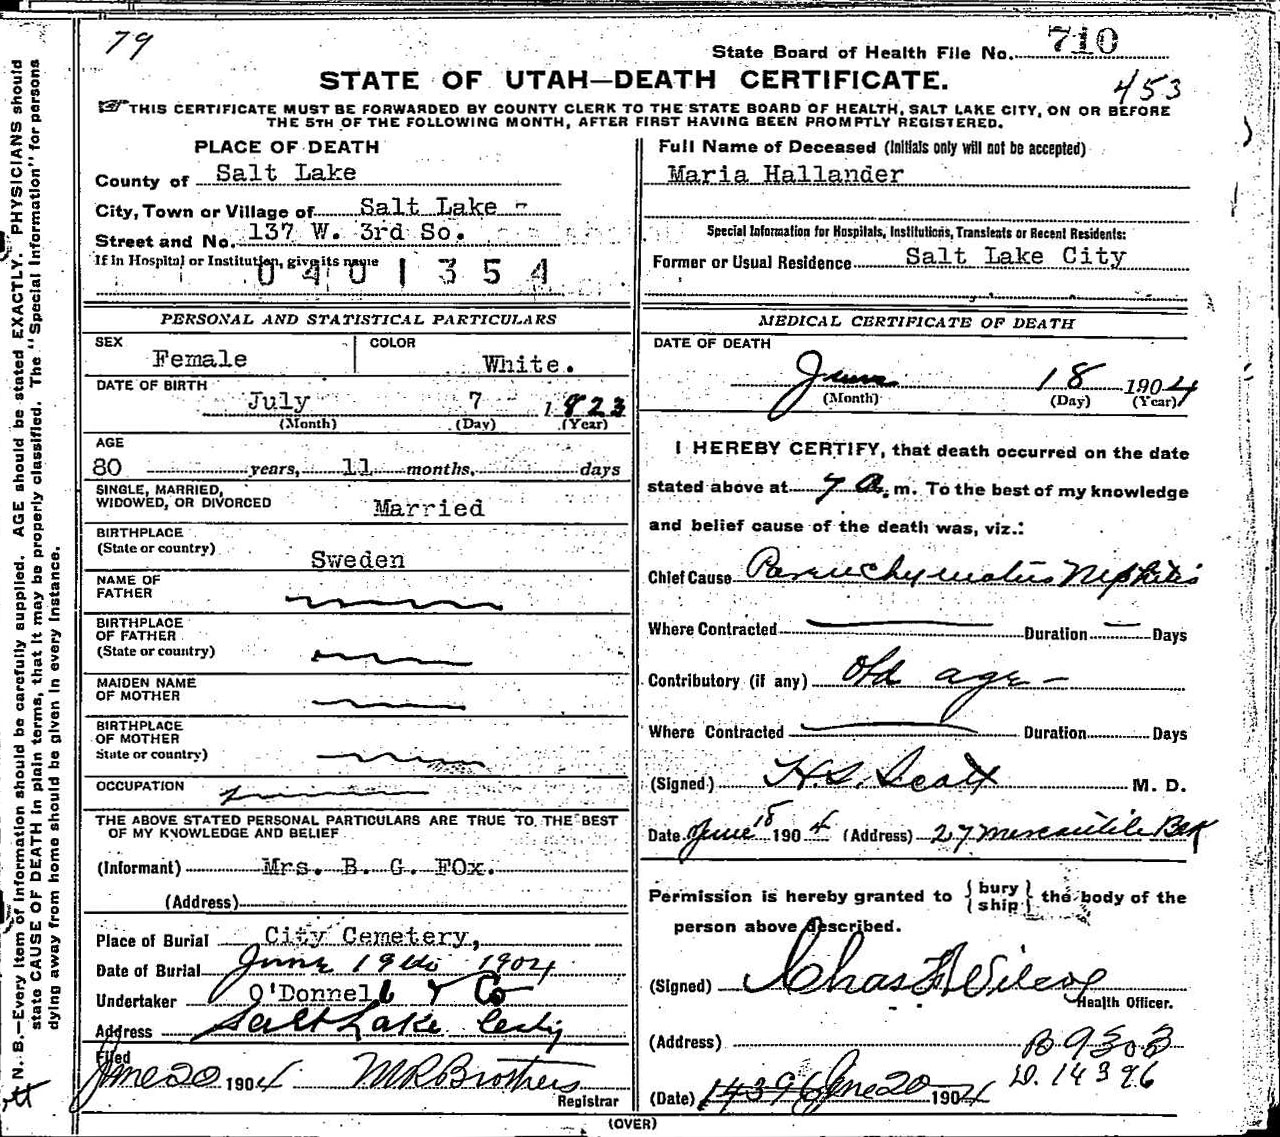 79
State Board of Health File No. 710
STATE OF UTAH—DEATH CERTIFICATE.
453
THIS CERTIFICATE MUST BE FORWARDED BY COUNTY CLERK TO THE STATE BOARD OF HEALTH, SALT LAKE CITY, ON OR BEFORE
THE 5TH OF THE FOLLOWING MONTH, AFTER FIRST HAVING BEEN PROMPTLY REGISTERED.
N. B.—Every item of information should be carefully supplied. AGE should be stated EXACTLY. PHYSICIANS should
state CAUSE OF DEATH in plain terms, that it may be properly classified. The "Special Information" for persons
dying away from home should be given in every instance.
PLACE OF DEATH
County of Salt Lake
City, Town or Village of Salt Lake -
Street and No. 137 W. 3rd So.
If in Hospital or Institution, give its name
0401354
PERSONAL AND STATISTICAL PARTICULARS
SEX Female COLOR White.
DATE OF BIRTH
July 7 1823
(Month) (Day) (Year)
AGE
80 years, 11 months, days
SINGLE, MARRIED,
WIDOWED, OR DIVORCED Married
BIRTHPLACE
(State or country) Sweden
NAME OF
FATHER
BIRTHPLACE
OF FATHER
(State or country)
MAIDEN NAME
OF MOTHER
BIRTHPLACE
OF MOTHER
State or country)
OCCUPATION
THE ABOVE STATED PERSONAL PARTICULARS ARE TRUE TO THE BEST
OF MY KNOWLEDGE AND BELIEF
(Informant) Mrs. B. G. FOx.
(Address)
Place of Burial City Cemetery,
Date of Burial June 19th 1904
Undertaker O'Donnell & Co
Address Salt Lake City
Filed
June 20 1904 M R Brothers
Registrar
Full Name of Deceased (Initials only will not be accepted)
Maria Hallander
Special Information for Hospitals, Institutions, Transients or Recent Residents:
Former or Usual Residence Salt Lake City
MEDICAL CERTIFICATE OF DEATH
DATE OF DEATH
June 18 1904
(Month) (Day) (Year)
I HEREBY CERTIFY, that death occurred on the date
stated above at 7 a. m. To the best of my knowledge
and belief cause of the death was, viz.:
Chief Cause Parenchymatus Nephitis
Where Contracted — Duration — Days
Contributory (if any) Old age -
Where Contracted — Duration Days
(Signed) H. S. Scott M. D.
Date June 18 1904 (Address) 27 Mercantile Blk
Permission is hereby granted to {bury
ship} the body of the
person above described.
(Signed) Chas F Wilcox
Health Officer.
(Address) B 9303
D. 14396
(Date) 14396 June 20 1904
(OVER)